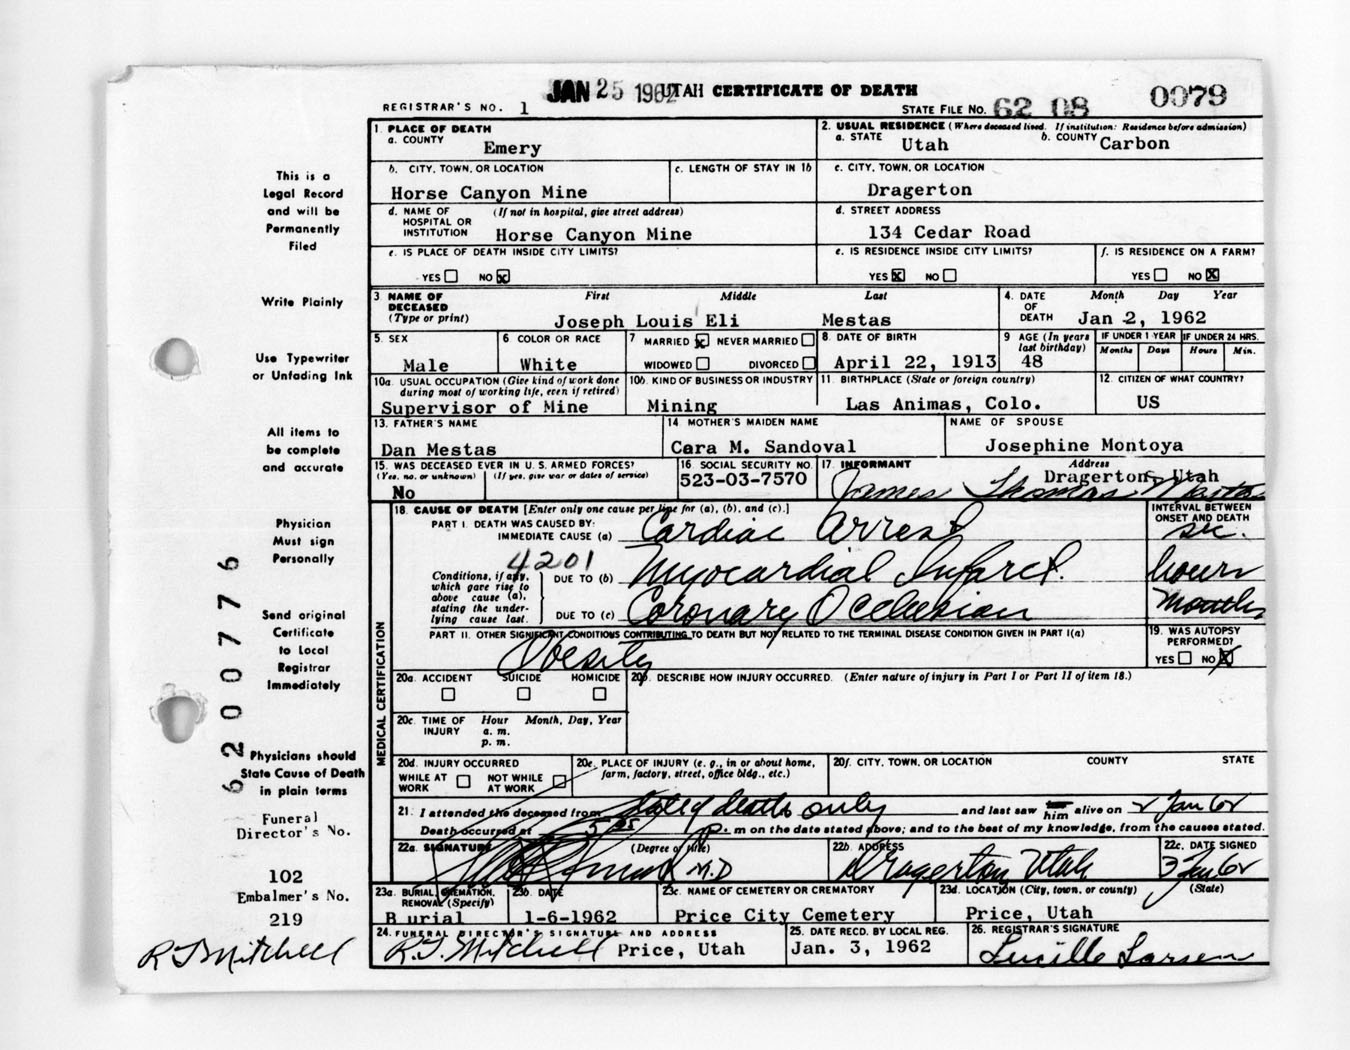 JAN 25 1962 UTAH CERTIFICATE OF DEATH
REGISTRAR'S NO. 1 STATE FILE NO. 62 08 0079
This is a
Legal Record
and will be
Permanently
Filed
Write Plainly
Use Typewriter
or Unfading Ink
All items to
be complete
and accurate
Physician
Must sign
Personally
Send original
Certificate
to Local
Registrar
Immediately
Physicians should
State Cause of Death
in plain terms
Funeral
Director's No.
102
Embalmer's No.
219
R T Mitchell
6200776
1. PLACE OF DEATH
a. COUNTY Emery
2. USUAL RESIDENCE (Where deceased lived. If institution: Residence before admission)
a. STATE Utah b. COUNTY Carbon
b. CITY, TOWN, OR LOCATION
Horse Canyon Mine
c. LENGTH OF STAY IN 1b
c. CITY, TOWN, OR LOCATION
Dragerton
d. NAME OF HOSPITAL OR INSTITUTION (If not in hospital, give street address)
Horse Canyon Mine
d. STREET ADDRESS
134 Cedar Road
e. IS PLACE OF DEATH INSIDE CITY LIMITS?
YES NO X
e. IS RESIDENCE INSIDE CITY LIMITS?
YES X NO
f. IS RESIDENCE ON A FARM?
YES NO X
3 NAME OF DECEASED (Type or print) First Middle Last
Joseph Louis Eli Mestas
4. DATE OF DEATH Month Day Year
Jan 2, 1962
5. SEX
Male
6 COLOR OR RACE
White
7 MARRIED X NEVER MARRIED
WIDOWED DIVORCED
8. DATE OF BIRTH
April 22, 1913
9 AGE (In years last birthday)
48
IF UNDER 1 YEAR IF UNDER 24 HRS.
Months Days Hours Min.
10a. USUAL OCCUPATION (Give kind of work done during most of working life, even if retired)
Supervisor of Mine
10b. KIND OF BUSINESS OR INDUSTRY
Mining
11. BIRTHPLACE (State or foreign country)
Las Animas, Colo.
12. CITIZEN OF WHAT COUNTRY?
US
13. FATHER'S NAME
Dan Mestas
14. MOTHER'S MAIDEN NAME
Cara M. Sandoval
NAME OF SPOUSE
Josephine Montoya
15. WAS DECEASED EVER IN U. S. ARMED FORCES?
(Yes, no, or unknown) (If yes, give war or dates of service)
No
16 SOCIAL SECURITY NO.
523-03-7570
17. INFORMANT Address
Dragerton, Utah
James Thomas Mestas
MEDICAL CERTIFICATION
18. CAUSE OF DEATH [Enter only one cause per line for (a), (b), and (c).]
PART I. DEATH WAS CAUSED BY:
IMMEDIATE CAUSE (a) Cardiac Arrest
INTERVAL BETWEEN ONSET AND DEATH
sec.
4201
Conditions, if any, which gave rise to above cause (a), stating the underlying cause last.
DUE TO (b) Myocardial Infarct. hours
DUE TO (c) Coronary Occlusion Months
PART II. OTHER SIGNIFICANT CONDITIONS CONTRIBUTING TO DEATH BUT NOT RELATED TO THE TERMINAL DISEASE CONDITION GIVEN IN PART I(a)
Obesity
19. WAS AUTOPSY PERFORMED?
YES NO X
20a. ACCIDENT SUICIDE HOMICIDE
20b. DESCRIBE HOW INJURY OCCURRED. (Enter nature of injury in Part I or Part II of item 18.)
20c. TIME OF INJURY Hour Month, Day, Year
a. m.
p. m.
20d. INJURY OCCURRED
WHILE AT WORK NOT WHILE AT WORK
20e. PLACE OF INJURY (e. g., in or about home, farm, factory, street, office bldg., etc.)
20f. CITY, TOWN, OR LOCATION COUNTY STATE
21. I attended the deceased from date of death only and last saw him alive on 2 Jan 62
Death occurred at 5 p. m on the date stated above; and to the best of my knowledge, from the causes stated.
22a. SIGNATURE (Degree or title)
M.D
22b. ADDRESS
Dragerton Utah
22c. DATE SIGNED
3 Jan 62
23a. BURIAL, CREMATION, REMOVAL (Specify)
Burial
23b. DATE
1-6-1962
23c. NAME OF CEMETERY OR CREMATORY
Price City Cemetery
23d. LOCATION (City, town, or county) (State)
Price, Utah
24. FUNERAL DIRECTOR'S SIGNATURE AND ADDRESS
R. T. Mitchell Price, Utah
25. DATE RECD. BY LOCAL REG.
Jan. 3, 1962
26. REGISTRAR'S SIGNATURE
Lucille Larsen